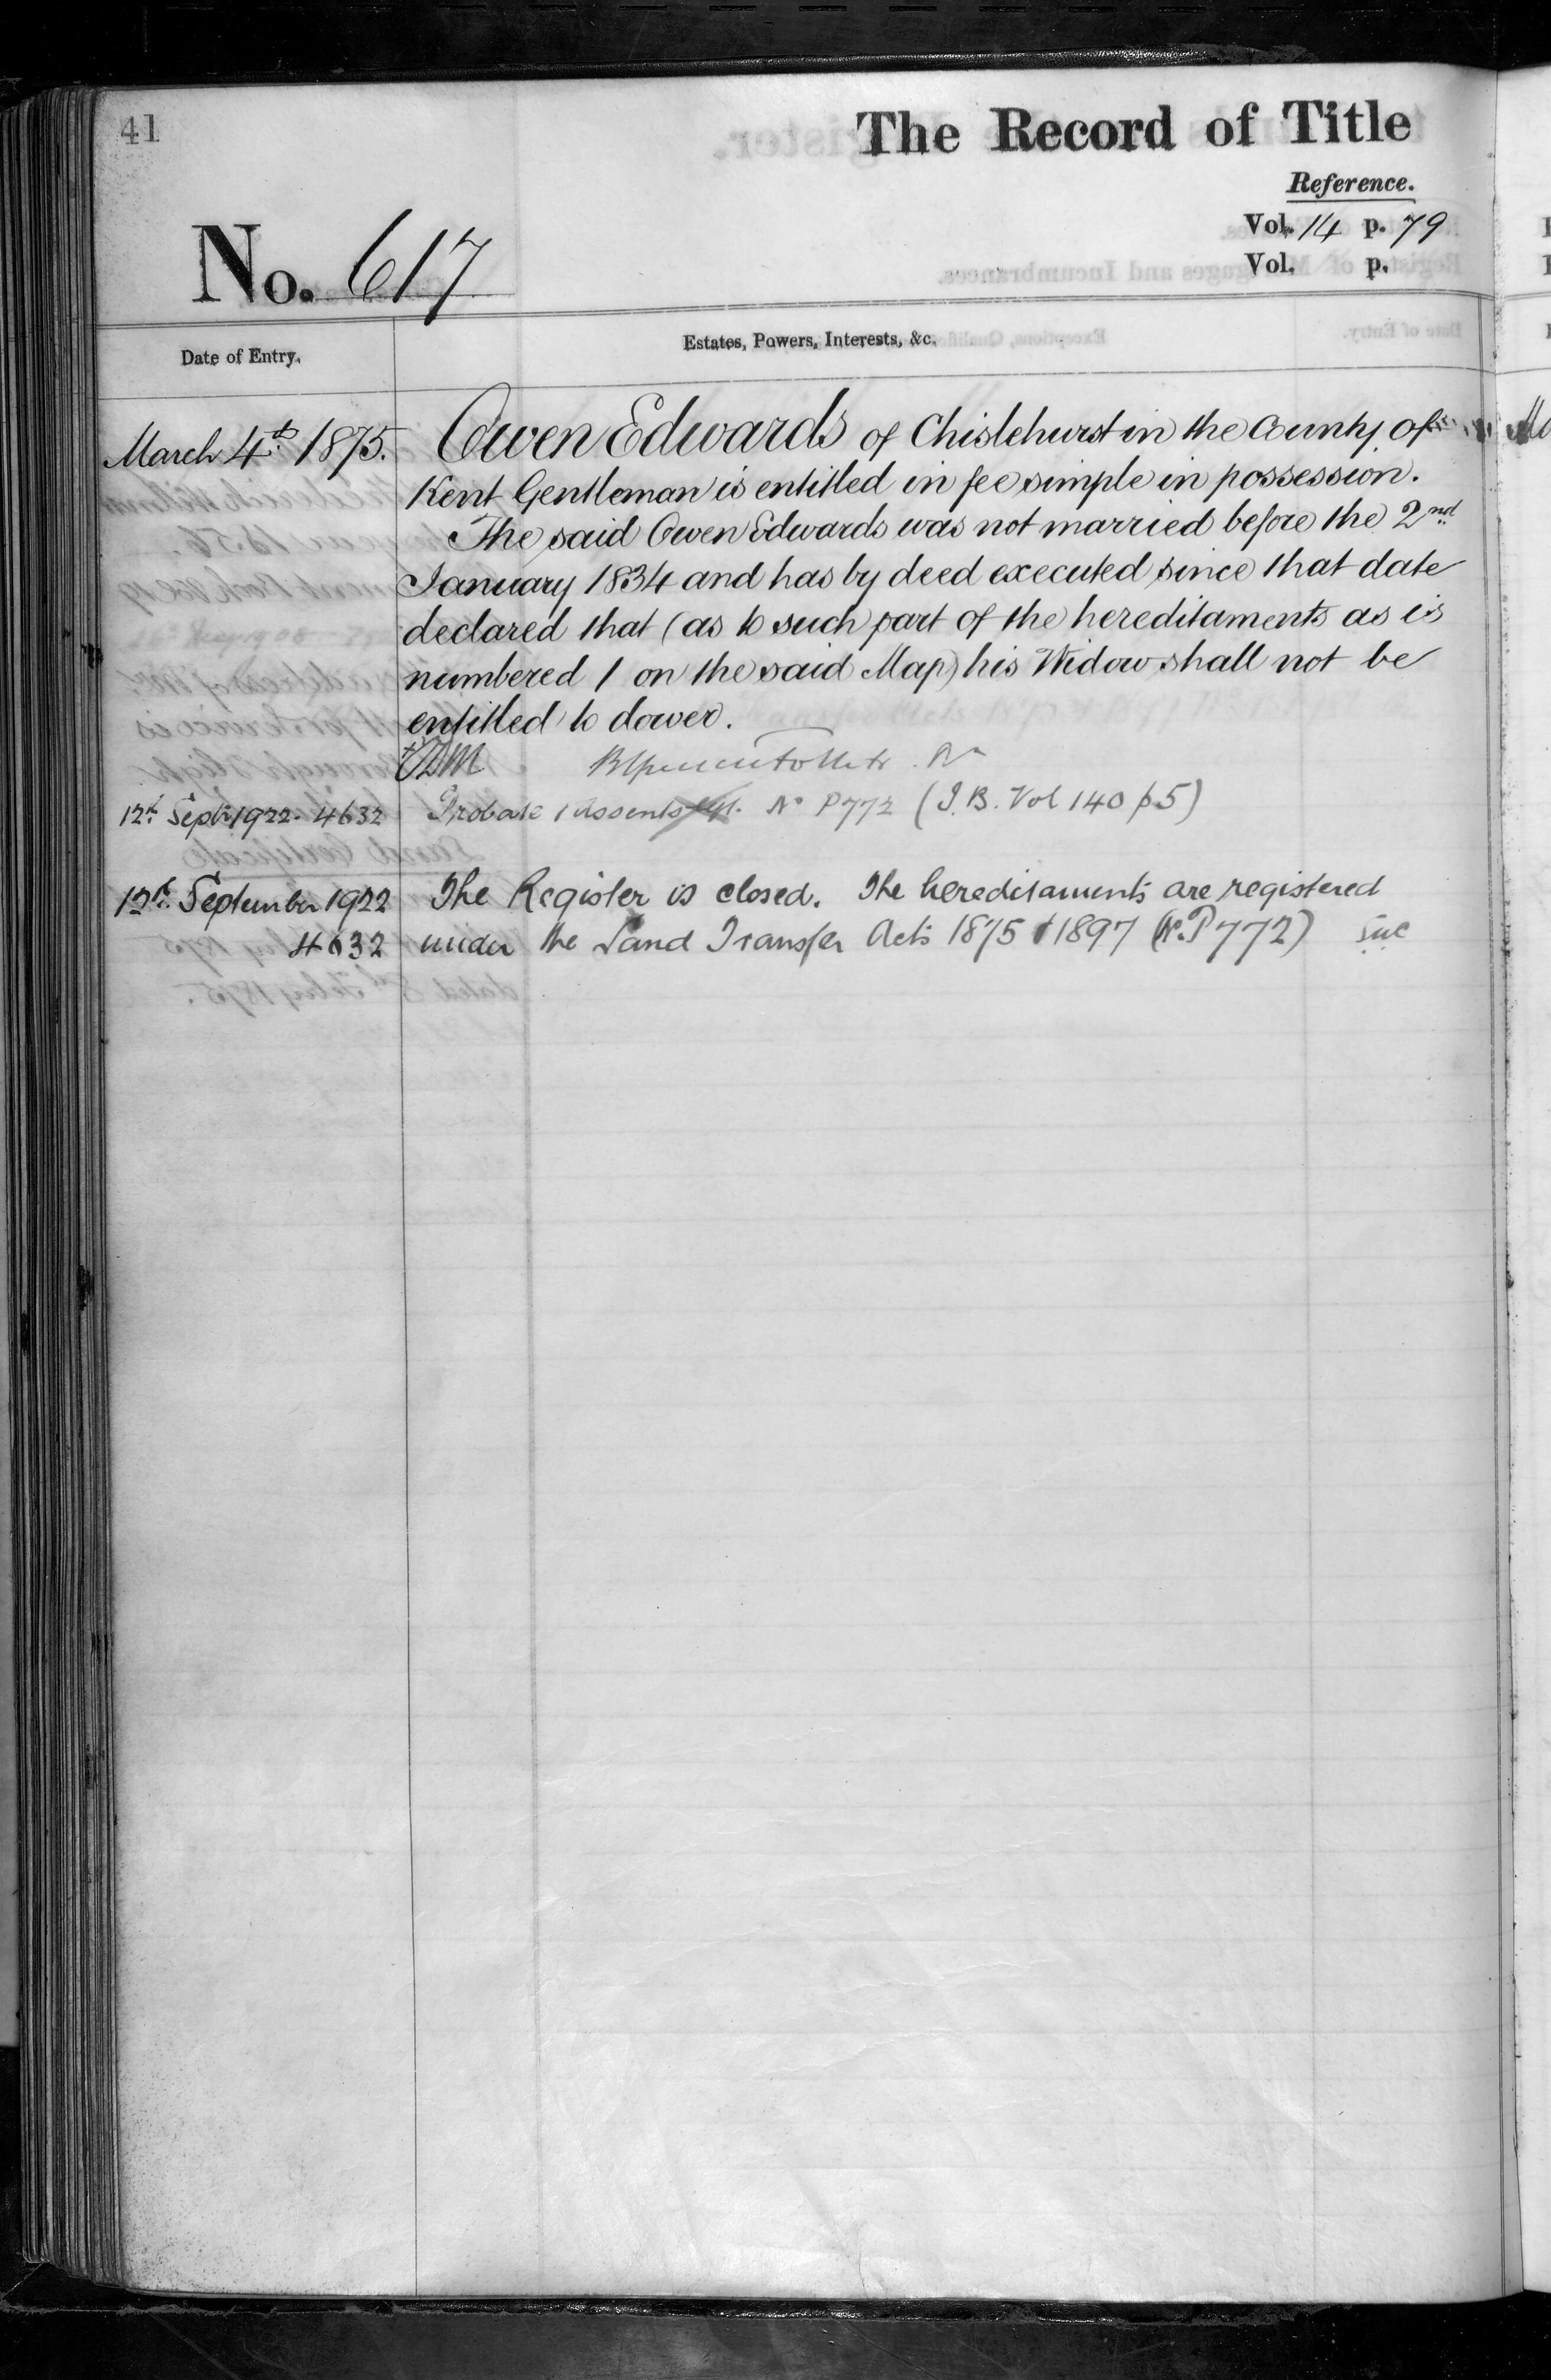 41
The Record of Title
Reference.
Vol. 14 p. 79
Vol. p.
No. 617
Date of Entry.
Estates, Powers, Interests, &c.
March 4th 1875.
Owen Edwards of Chislehurst in the County of
Kent Gentleman is entitled in fee simple in possession.
The said Owen Edwards was not married before the 2nd
January 1834 and has by deed executed since that date
declared that (as to such part of the hereditaments as is
numbered 1 on the said Map) his Widow shall not be
entitled to dower.
12th Sept. 1922. 4632 Probate & Assents No P772 (I.B. Vol 140 p5)
12th September 1922 The Register is closed. The hereditaments are registered
4632 under the Land Transfer Acts 1875 & 1897 (No. P772)